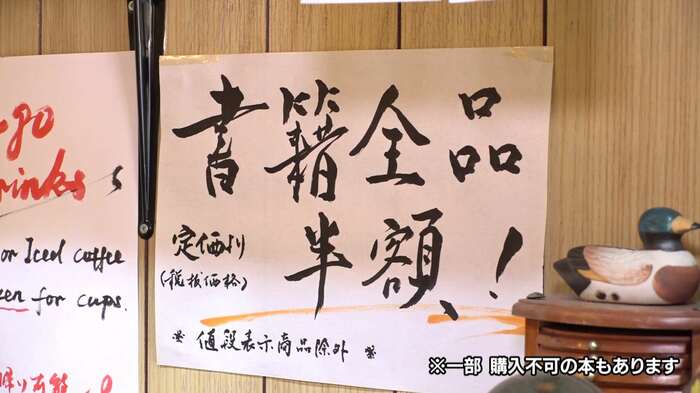 書籍全品
定価より
半額!
(税抜価格)
※ 値段表示商品除外 ※
or Iced coffee
for cups.
※一部 購入不可の本もあります